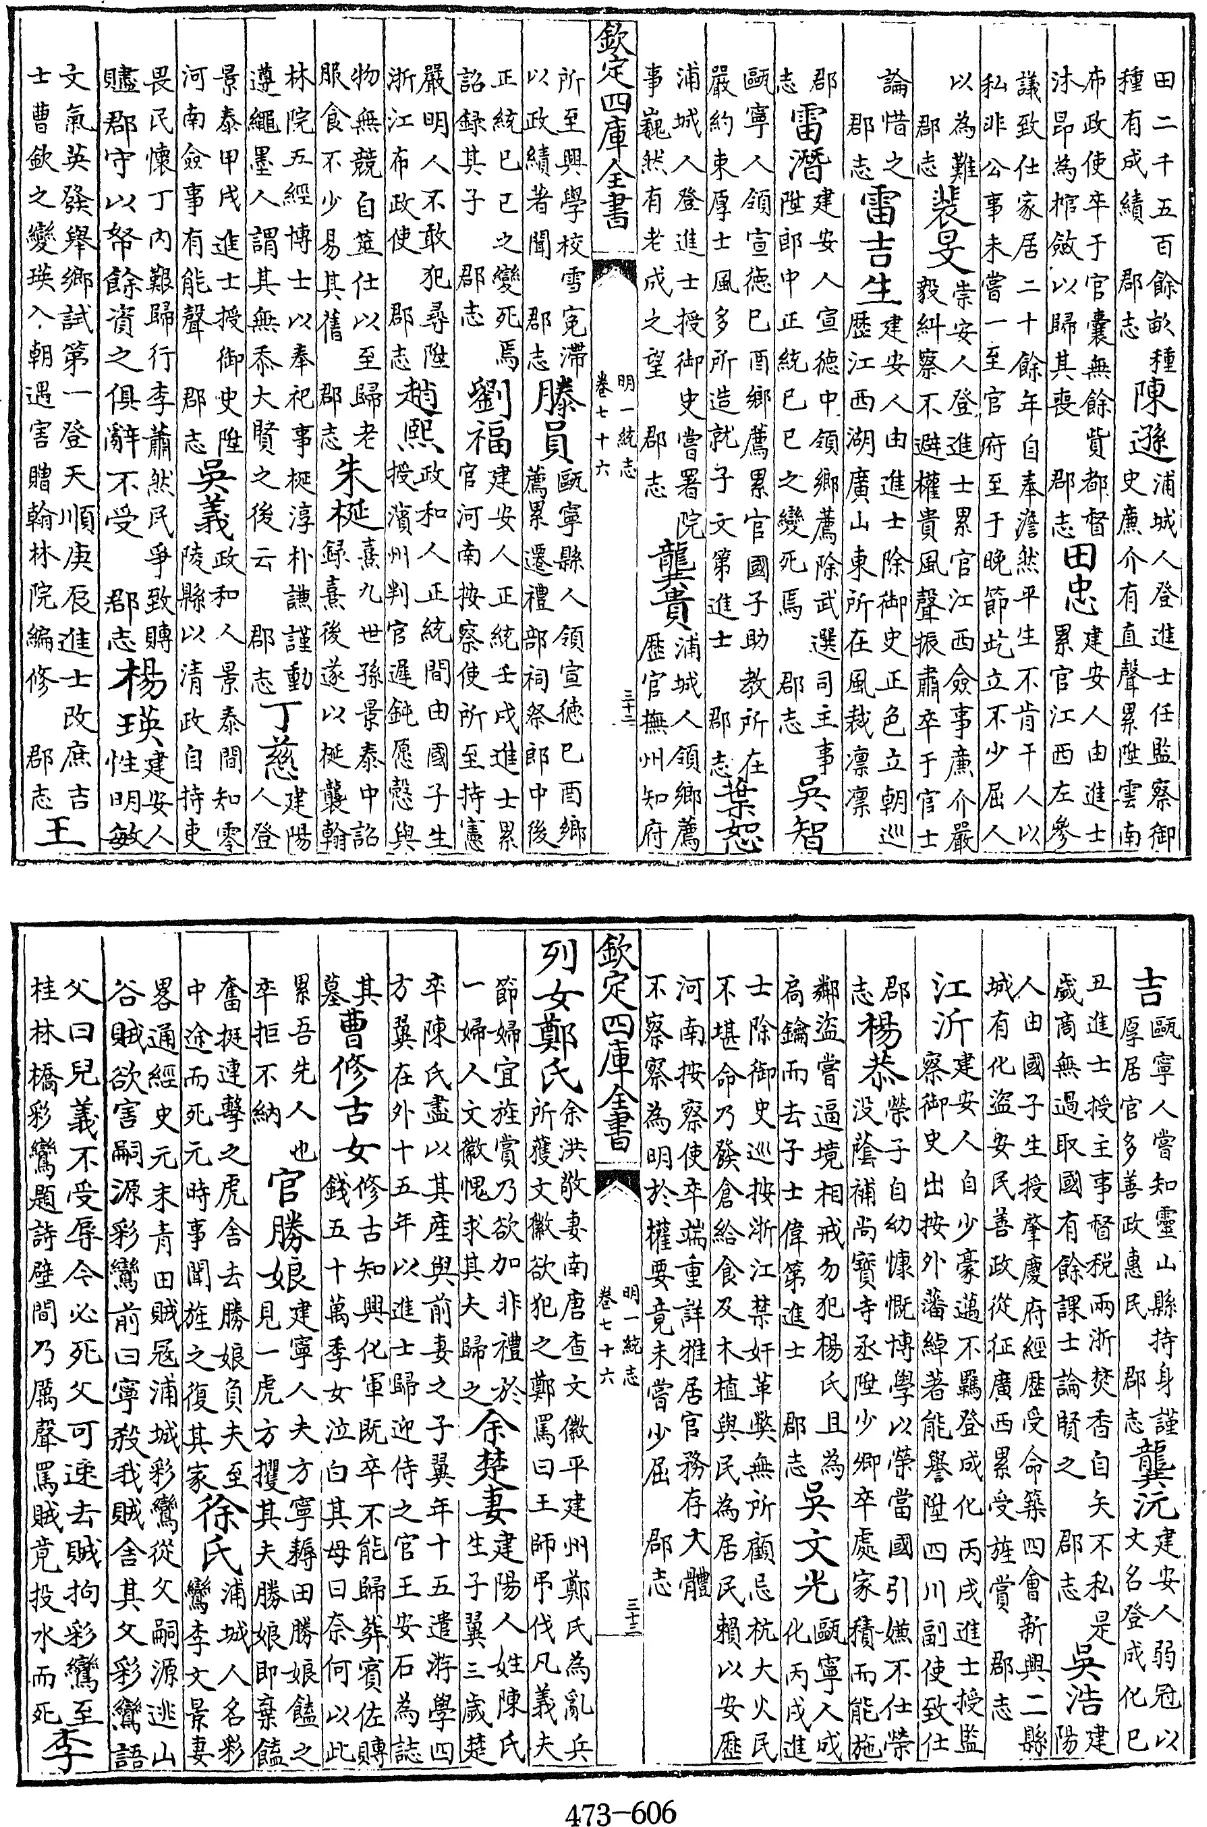 田二千五百餘畝種
種有成績 郡志
陳遜
浦城人登進士任監察御
史廉介有直聲累陞雲南
布政使卒于官囊無餘貲都督
沐昂為棺斂以歸其喪 郡志
田忠
建安人由進士
累官江西左參
議致仕家居二十餘年自奉澹然平生不肯干人以
私非公事未嘗一至官府至于晚節屹立不少屈人
以為難
郡志
裴旻
崇安人登進士累官江西僉事廉介嚴
毅糾察不避權貴風聲振肅卒于官士
論惜之
郡志
雷吉生
建安人由進士除御史正色立朝巡
歷江西湖廣山東所在風裁凛凛
郡
志
雷潛
建安人宣德中領鄉薦除武選司主事
陞郎中正統己巳之變死焉 郡志
吳智
甌寧人領宣德己酉鄉薦累官國子助教所在
嚴約束厚士風多所造就子文第進士 郡志
葉恕
浦城人登進士授御史嘗署院
事巍然有老成之望 郡志
龔貴
浦城人領鄉薦
歷官撫州知府
欽定四庫全書
明一統志
卷七十六
三十二
所至興學校雪寃滯
以政績著聞 郡志
滕員
甌寧縣人領宣德己酉鄉
薦累遷禮部祠祭郎中後
正統己巳之變死焉
詔録其子 郡志
劉福
建安人正統壬戌進士累
官河南按察使所至持憲
嚴明人不敢犯尋陞
浙江布政使 郡志
趙熙
政和人正統間由國子生
授濱州判官遲鈍愿慤與
物無競自筮仕以至歸老
服食不少易其舊 郡志
朱梴
熹九世孫景泰中詔
録熹後遂以梴襲翰
林院五經博士以奉祀事梴淳朴謙謹動
遵繩墨人謂其無忝大賢之後云 郡志
丁慈
建陽
人登
景泰甲戌進士授御史陞
河南僉事有能聲 郡志
吳義
政和人景泰間知零
陵縣以清政自持吏
畏民懷丁內艱歸行李蕭然民爭致賻
贐郡守以帑餘資之俱辭不受 郡志
楊瑛
建安人
性明敏
文氣英發舉鄉試第一登天順庚辰進士改庶吉
士曹欽之變瑛入朝遇害贈翰林院編修 郡志
王
吉
甌寧人嘗知靈山縣持身謹
厚居官多善政惠民 郡志
龔沅
建安人弱冠以
文名登成化己
丑進士授主事督稅兩浙焚香自矢不私是
歲商無過取國有餘課士論賢之 郡志
吳浩
建
陽
人由國子生授肇慶府經歷受命築四會新興二縣
城有化盜安民善政從征廣西累受旌賞 郡志
江沂
建安人自少豪邁不羈登成化丙戌進士授監
察御史出按外藩綽著能譽陞四川副使致仕
郡
志
楊恭
榮子自幼慷慨博學以榮當國引嫌不仕榮
没蔭補尚寶寺丞陞少卿卒處家積而能施
鄰盜嘗逼境相戒勿犯楊氏且為
扃鑰而去子士偉第進士 郡志
吳文光
甌寧人成
化丙戌進
士除御史巡按浙江禁奸革獘無所顧忌杭大火民
不堪命乃發倉給食及木植與民為居民賴以安歷
河南按察使卒端重詳雅居官務存大體
不察察為明於權要竟未嘗少屈 郡志
欽定四庫全書
明一統志
卷七十六
三十三
列女鄭氏
余洪敬妻南唐查文徽平建州鄭氏為亂兵
所獲文徽欲犯之鄭罵曰王師弔伐凡義夫
節婦宜旌賞乃欲加非禮於
一婦人文徽愧求其夫歸之
余楚妻
建陽人姓陳氏
生子翼三歲楚
卒陳氏盡以其產與前妻之子翼年十五遣游學四
方翼在外十五年以進士歸迎侍之官王安石為誌
其
墓
曹修古女
修古知興化軍既卒不能歸葬賓佐賻
錢五十萬季女泣白其母曰奈何以此
累吾先人也
卒拒不納
官勝娘
建寧人夫方寧耨田勝娘饁之
見一虎方攫其夫勝娘即棄饁
奮挺連擊之虎舍去勝娘負夫至
中途而死元時事聞旌之復其家
徐氏
浦城人名彩
鸞李文景妻
畧通經史元末青田賊冦浦城彩鸞從父嗣源逃山
谷賊欲害嗣源彩鸞前曰寧殺我賊舍其父彩鸞語
父曰兒義不受辱今必死父可速去賊拘彩鸞至
桂林橋彩鸞題詩壁間乃厲聲罵賊竟投水而死
李
473-606